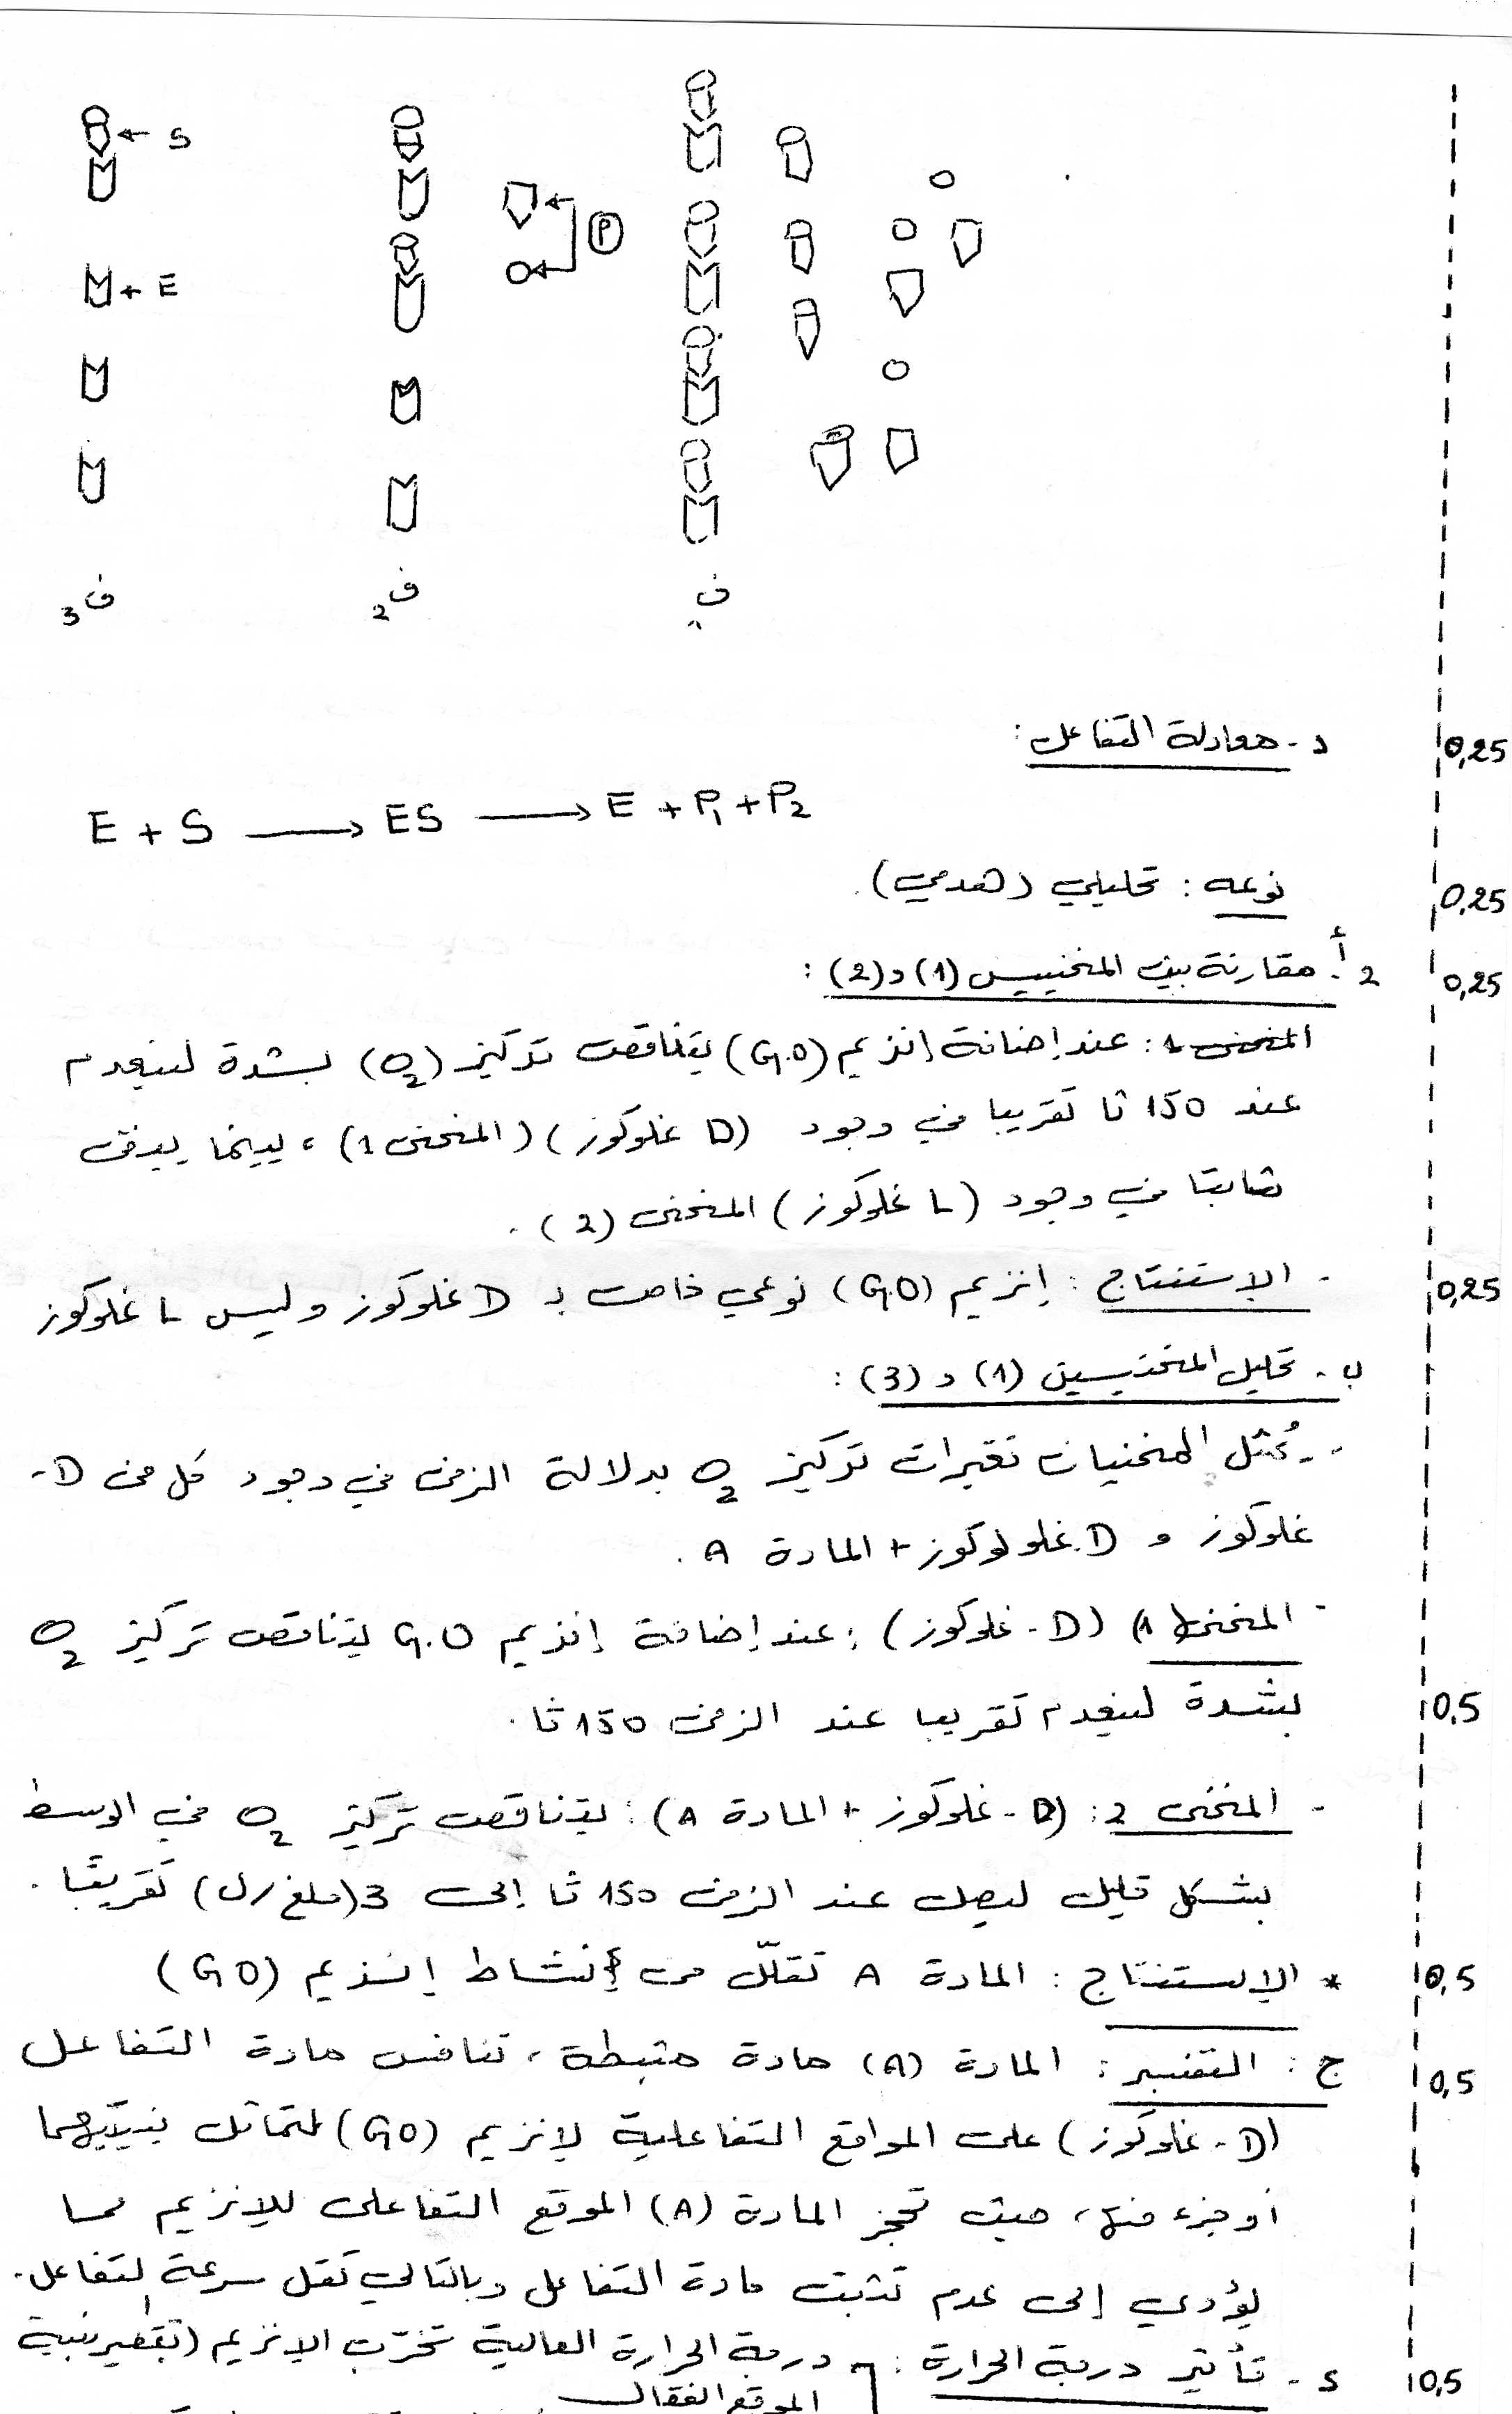 S
E
P
ف1
ف2
ف3
د - معادلة التفاعل : 0,25
E + S → ES → E + P1 + P2
نوعه : تحليلي (هدمي). 0,25
2 أ. مقارنة بين المنحنيين (1) و (2) : 0,25
المنحنى 1 : عند إضافة إنزيم (G.O) يتناقص تركيز (O2) بشدة لينعدم
عند 150 ثا تقريبا في وجود (D غلوكوز) (المنحنى 1)، بينما يبقى
ثابتا في وجود (L غلوكوز) المنحنى (2).
- الإستنتاج : إنزيم (GO) نوعي خاص بـ D غلوكوز وليس L غلوكوز 0,25
ب - تحليل المنحنيين (1) و (3) :
- يُمثل المنحنيان تغيرات تركيز O2 بدلالة الزمن في وجود كل من D-
غلوكوز و D غلولوكوز + المادة A .
- المنحنى (1) (D - غلوكوز) : عند إضافة إنزيم G.O يتناقص تركيز O2
بشدة لينعدم تقريبا عند الزمن 150 ثا . 0,5
- المنحنى 2 : (D - غلوكوز + المادة A) : يتناقص تركيز O2 في الوسط
بشكل قليل ليصل عند الزمن 150 ثا إلى 3 (ملغ/ل) تقريبًا .
* الإستنتاج : المادة A تقلّل من نشاط إنزيم (GO) 0,5
ج : التفسير : المادة (A) مادة مثبطة، تنافس مادة التفاعل 0,5
(D - غلوكوز) على المواقع التفاعلية لإنزيم (GO) لتماثل بنيتيهما
أو جزء منها، حيث تحجز المادة (A) الموقع التفاعلي للإنزيم مما
يؤدي إلى عدم تثبت مادة التفاعل وبالتالي تقل سرعة التفاعل.
د - تأثير درجة الحرارة : درجة الحرارة العالية تخرّب الإنزيم (تغير بنية 0,5
الموقع الفعّال